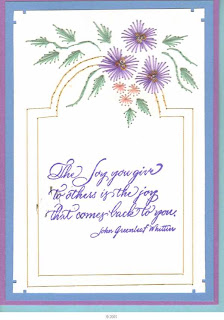 The Joy you give
to others is the joy
that comes back to you.
John Greenleaf Whittier